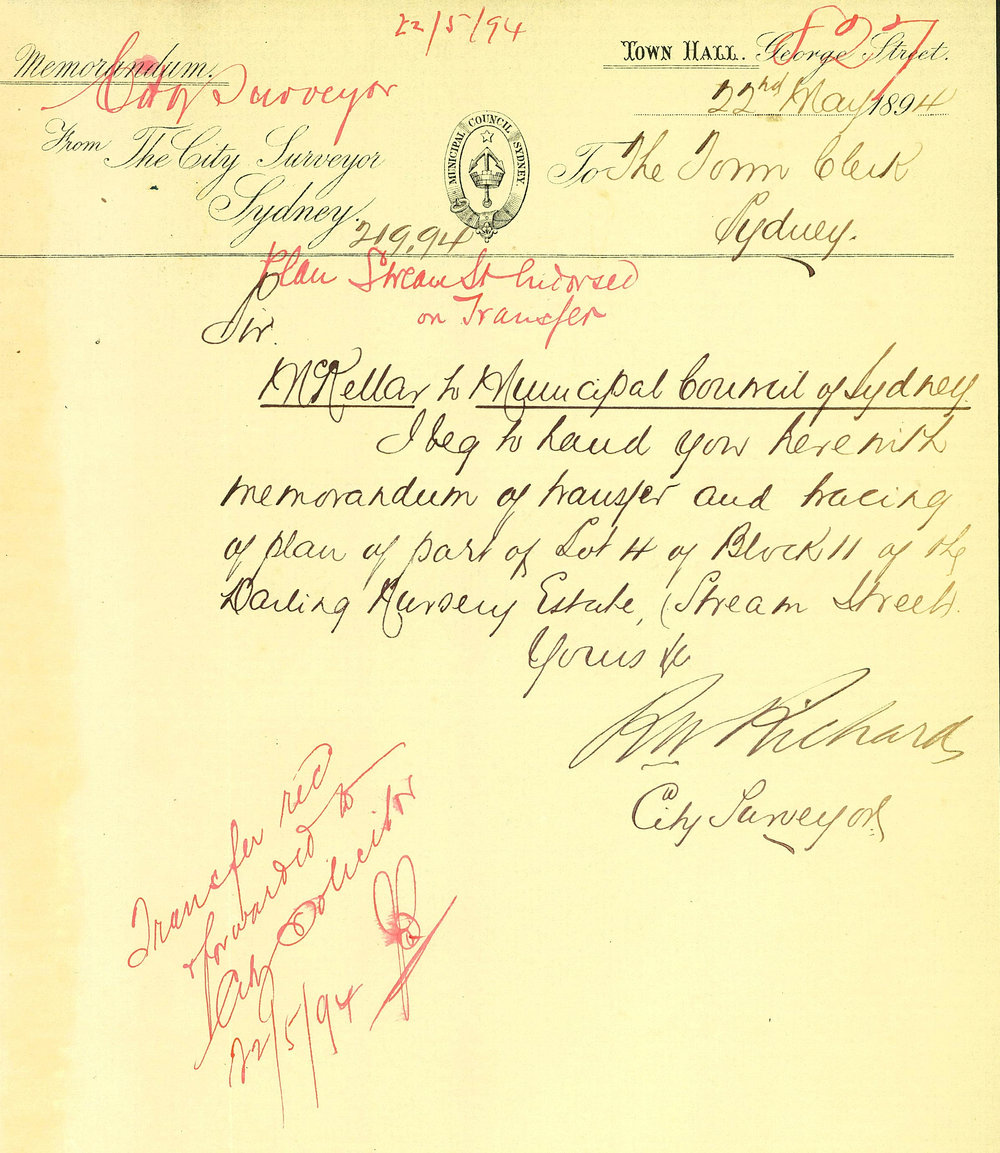 22/5/94
827
Memorandum.
Town Hall. George Street.
City Surveyor
22nd May 1894
From The City Surveyor
Sydney.
MUNICIPAL COUNCIL SYDNEY.
To The Town Clerk
Sydney.
219.94
Plan Stream St Endorsed
on Transfer
Sir.
McKellar to Municipal Council of Sydney.
I beg to hand you herewith
memorandum of transfer and tracing
of plan of part of Lot 4 of Block 11 of the
Darling Nursery Estate, (Stream Street).
Yours &c
RW Richards
City Surveyor
Transfer recd
& forwarded to
City Solicitor
22/5/94